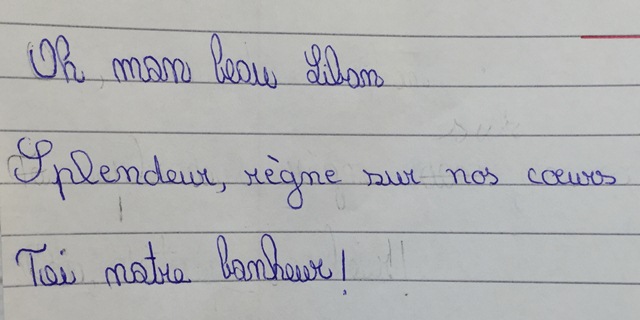 Oh mon beau Liban
Splendeur, règne sur nos cœurs
Toi notre bonheur!